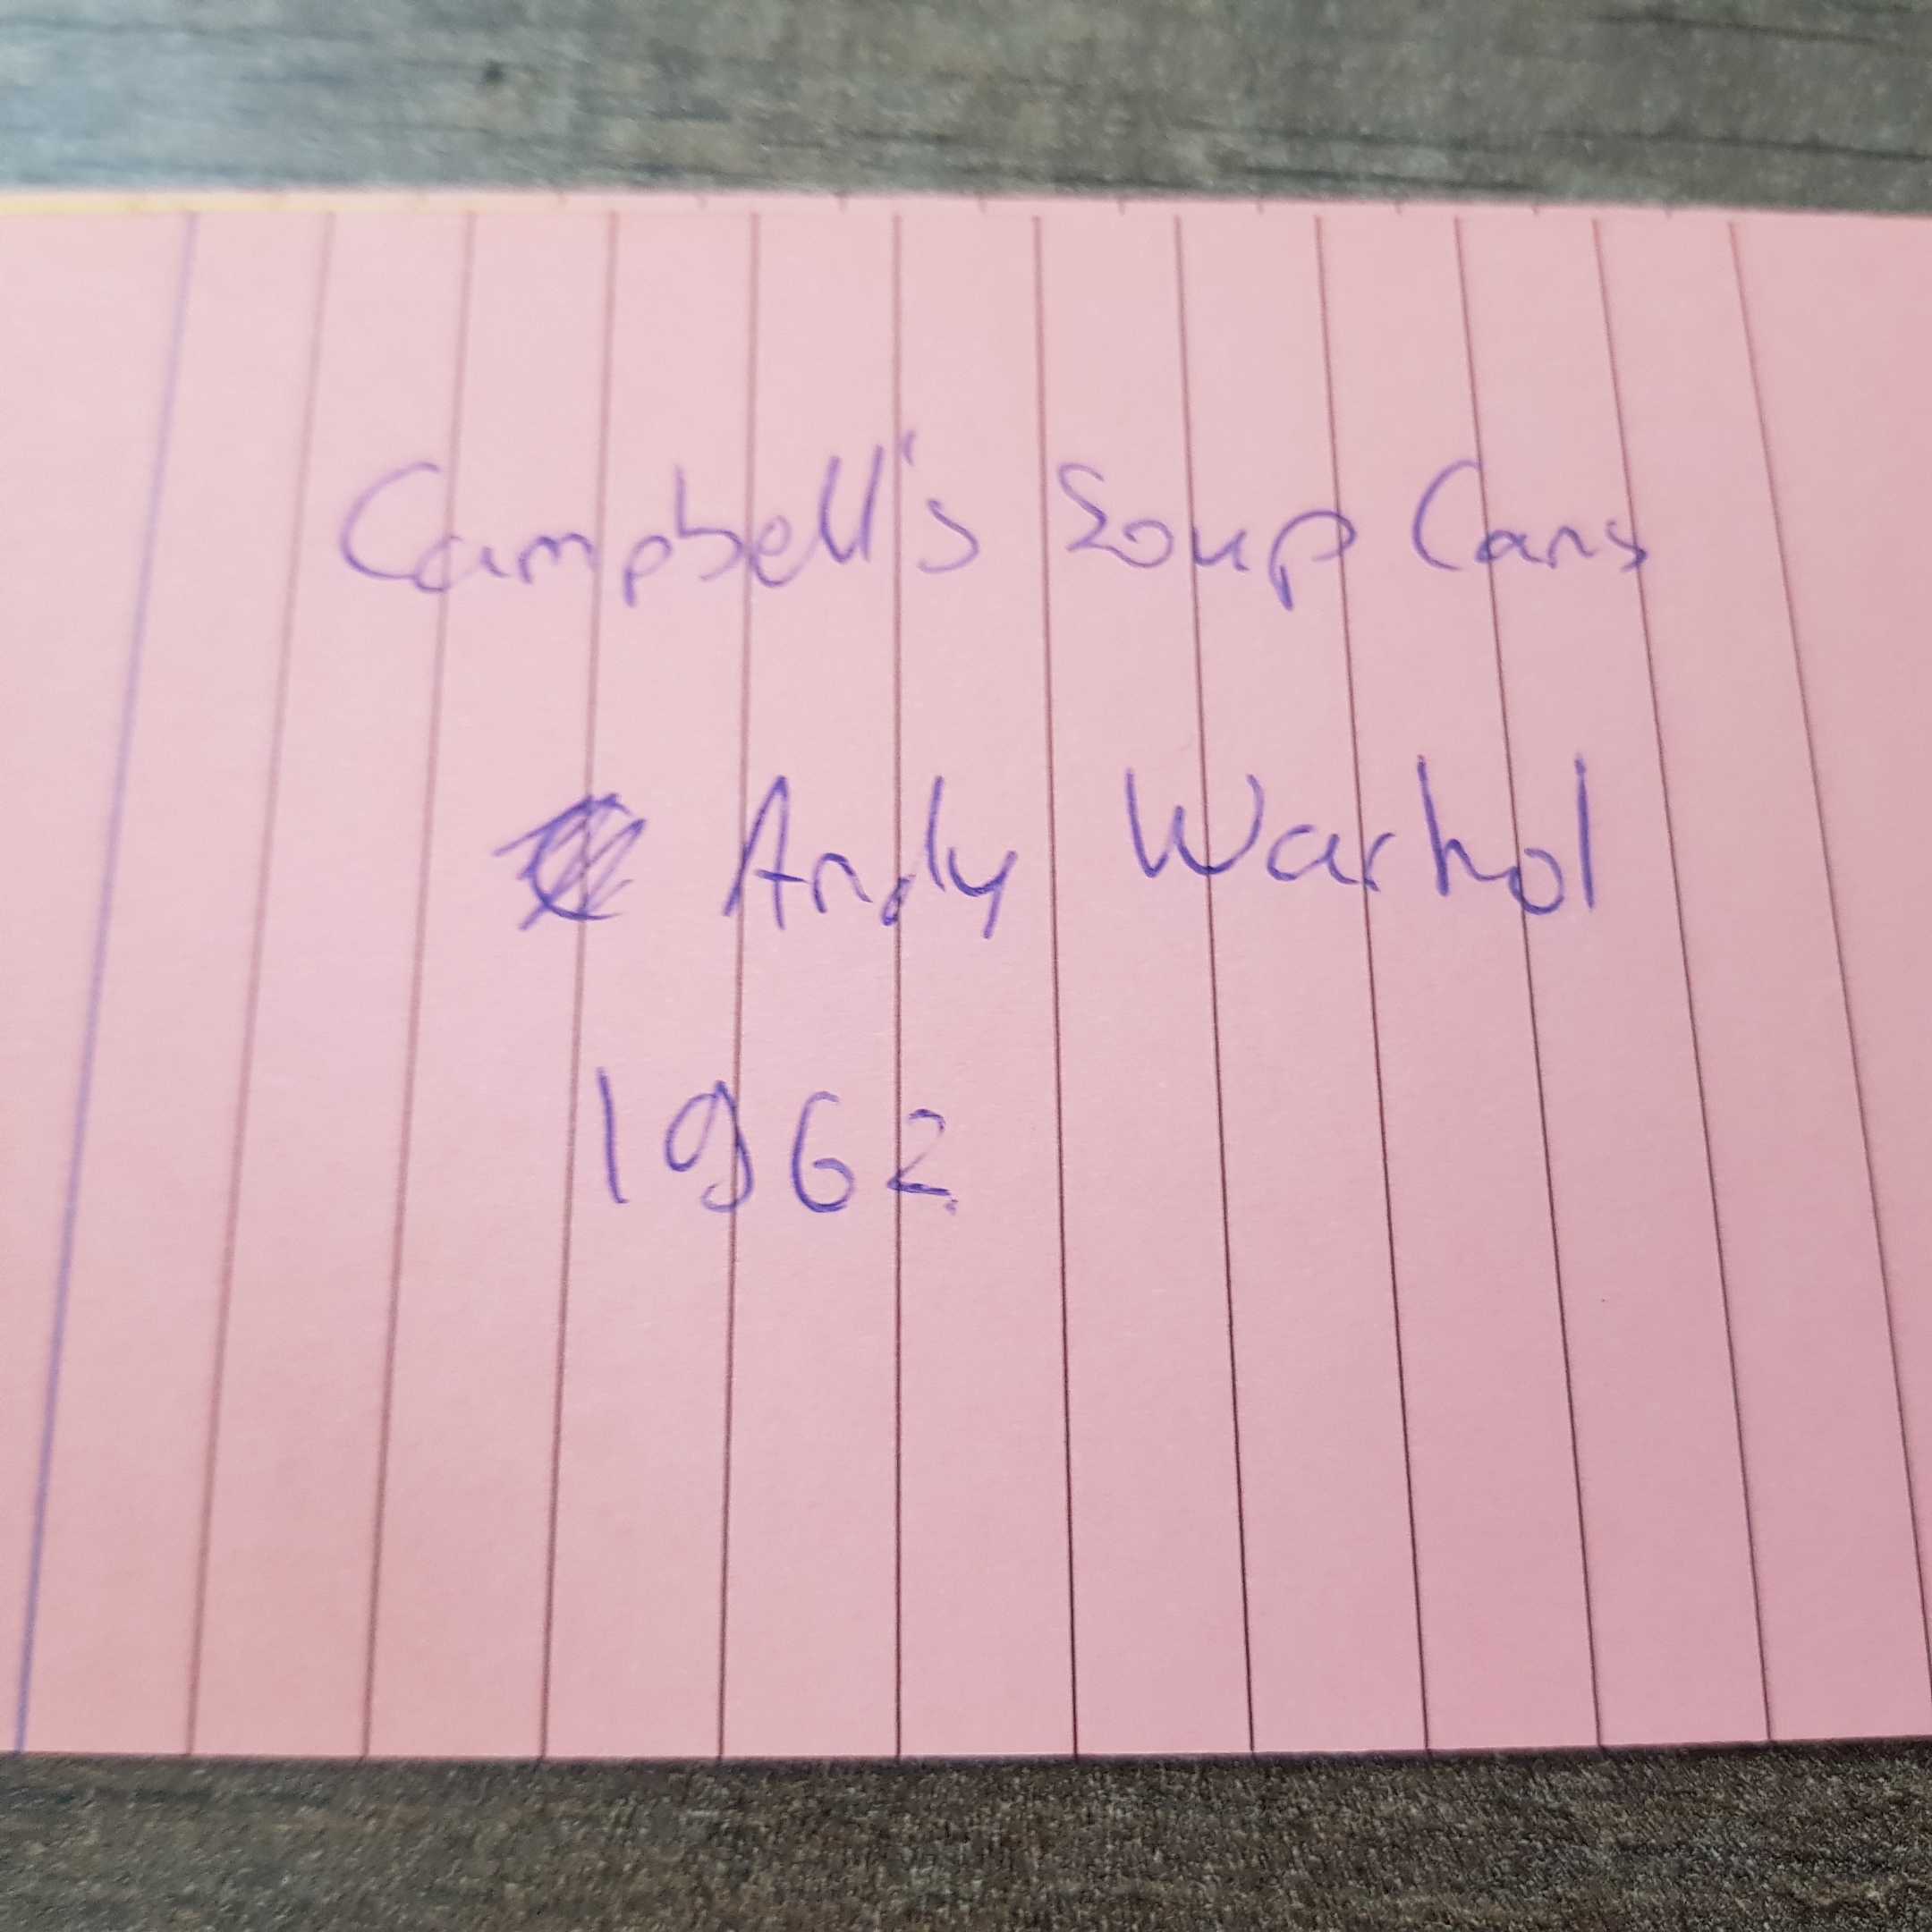 Campbell's Soup Cans
Andy Warhol
1962